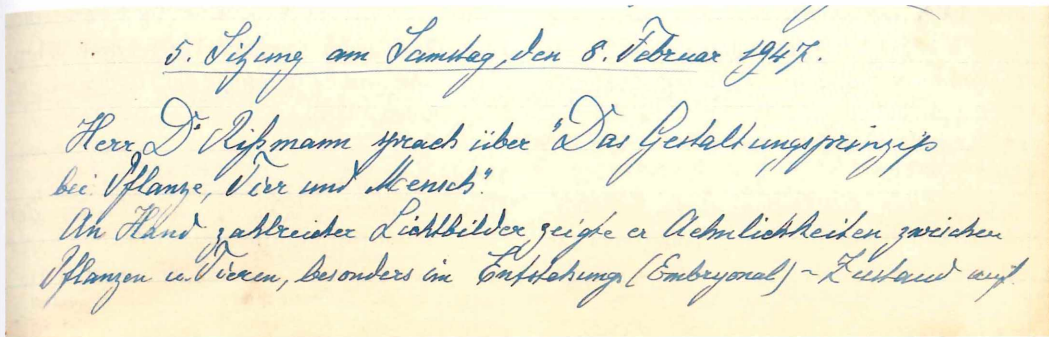 5. Sitzung am Samstag, den 8. Februar 1947.
Herr Dr Rißmann sprach über "Das Gestaltungsprinzip
bei Pflanze, Tier und Mensch".
An Hand zahlreicher Lichtbilder zeigte er Aehnlichkeiten zwischen
Pflanzen u. Tieren, besonders im Entstehungs (Embryonal) - Zustand auf.